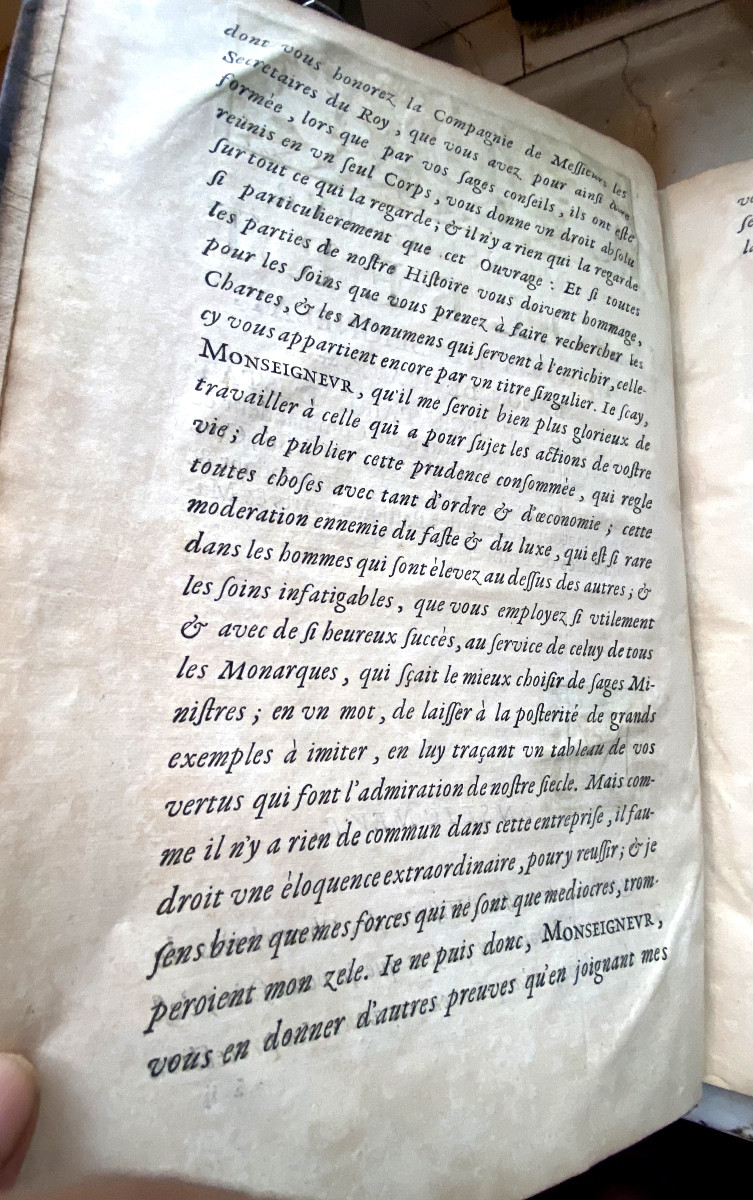 dont vous honorez la Compagnie de Meſſieurs les
Secretaires du Roy, que vous avez pour ainſi dire
formée, lors que par vos ſages conſeils, ils ont eſté
reünis en vn ſeul Corps, vous donne vn droit abſolu
ſur tout ce qui la regarde; & il n'y a rien qui la regarde
ſi particulierement que cet Ouvrage: Et ſi toutes
les parties de noſtre Hiſtoire vous doivent hommage,
pour les ſoins que vous prenez à faire rechercher les
Chartes, & les Monumens qui ſervent à l'enrichir, celle-
cy vous appartient encore par vn titre ſingulier. Ie ſcay,
MONSEIGNEVR, qu'il me ſeroit bien plus glorieux de
travailler à celle qui a pour ſujet les actions de voſtre
vie; de publier cette prudence conſommée, qui regle
toutes choſes avec tant d'ordre & d'œconomie; cette
moderation ennemie du faſte & du luxe, qui eſt ſi rare
dans les hommes qui ſont èlevez au deſſus des autres; &
les ſoins infatigables, que vous employez ſi vtilement
& avec de ſi heureux ſuccès, au ſervice de celuy de tous
les Monarques, qui ſçait le mieux choiſir de ſages Mi-
niſtres; en vn mot, de laiſſer à la poſterité de grands
exemples à imiter, en luy traçant vn tableau de vos
vertus qui font l'admiration de noſtre ſiecle. Mais com-
me il n'y a rien de commun dans cette entrepriſe, il fau-
droit vne èloquence extraordinaire, pour y reuſſir; & je
ſens bien que mes forces qui ne ſont que mediocres, trom-
peroient mon zele. Ie ne puis donc, MONSEIGNEVR,
vous en donner d'autres preuves qu'en joignant mes